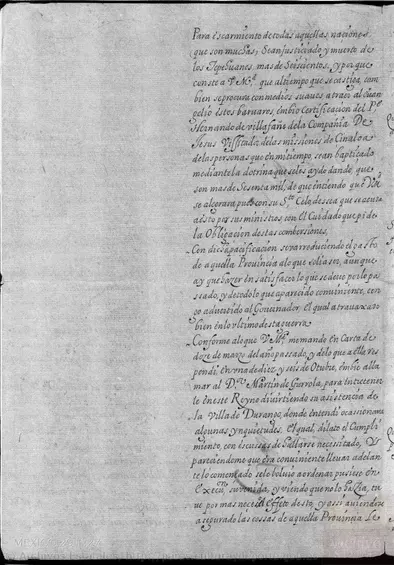 Para escarmiento de todas aquellas naciones
que son muchas, sean justiciado y muerto de
los Tepehuanes, mas de Seiscientos, y porque
conste a V. Mg.d que al tiempo que se castiga, tam
bien se procura con medios suaues atraer al Euan
gelio estos barbaros, embio Certificacion del P.e
Hernando de Villafañe de la Compañia De
Jesus Vissitador de las missiones de Cinaloa
de las personas que en mi tiempo sean baptizado
mediante la dotrina que seles aydo dando, que
son mas de Sesenta mil, de que entiendo que V M
se alegrara pues con su S.to Celo dessea que se acuda
a esto por sus ministros con el Cuidado que pide
la Obligacion destas combersiones.
Con dicha pacificacion se va reduciendo el
de aquella Prouincia alo que solia ser, aunque
ay que hazer en satisfacer lo que se deue por lo pa
ssado, y de todo lo que aparecido conuiniente, ten
go aduertido al Gouernador. El qual a trauaxado
bien en lo vltimo desta guerra.
Conforme alo que V. Mg. me mando en Carta de
doze de março del año passado, y delo que a ella res
pondi, en vna de diez y seis de Otubre, embie alla
mar al D.or Martin de Egurrola, para
te en este Reyno diuirtiendo su asistencia de
la Villa de Durango, donde entendi ocasionaua
algunas ynquietudes. El qual, dilato el Cumpli
miento, con escussas de hallarse necessitado, y
pareciendome que era conuiniente lleuar adelan
te lo comensado selo boluio a ordenar pusiese en
Execu.on su venida, y viendo que no lo hazia, tu
ue por mas necess.o Effeto desto, y assi auiendose
asegurado las cossas de aquella Prouincia se